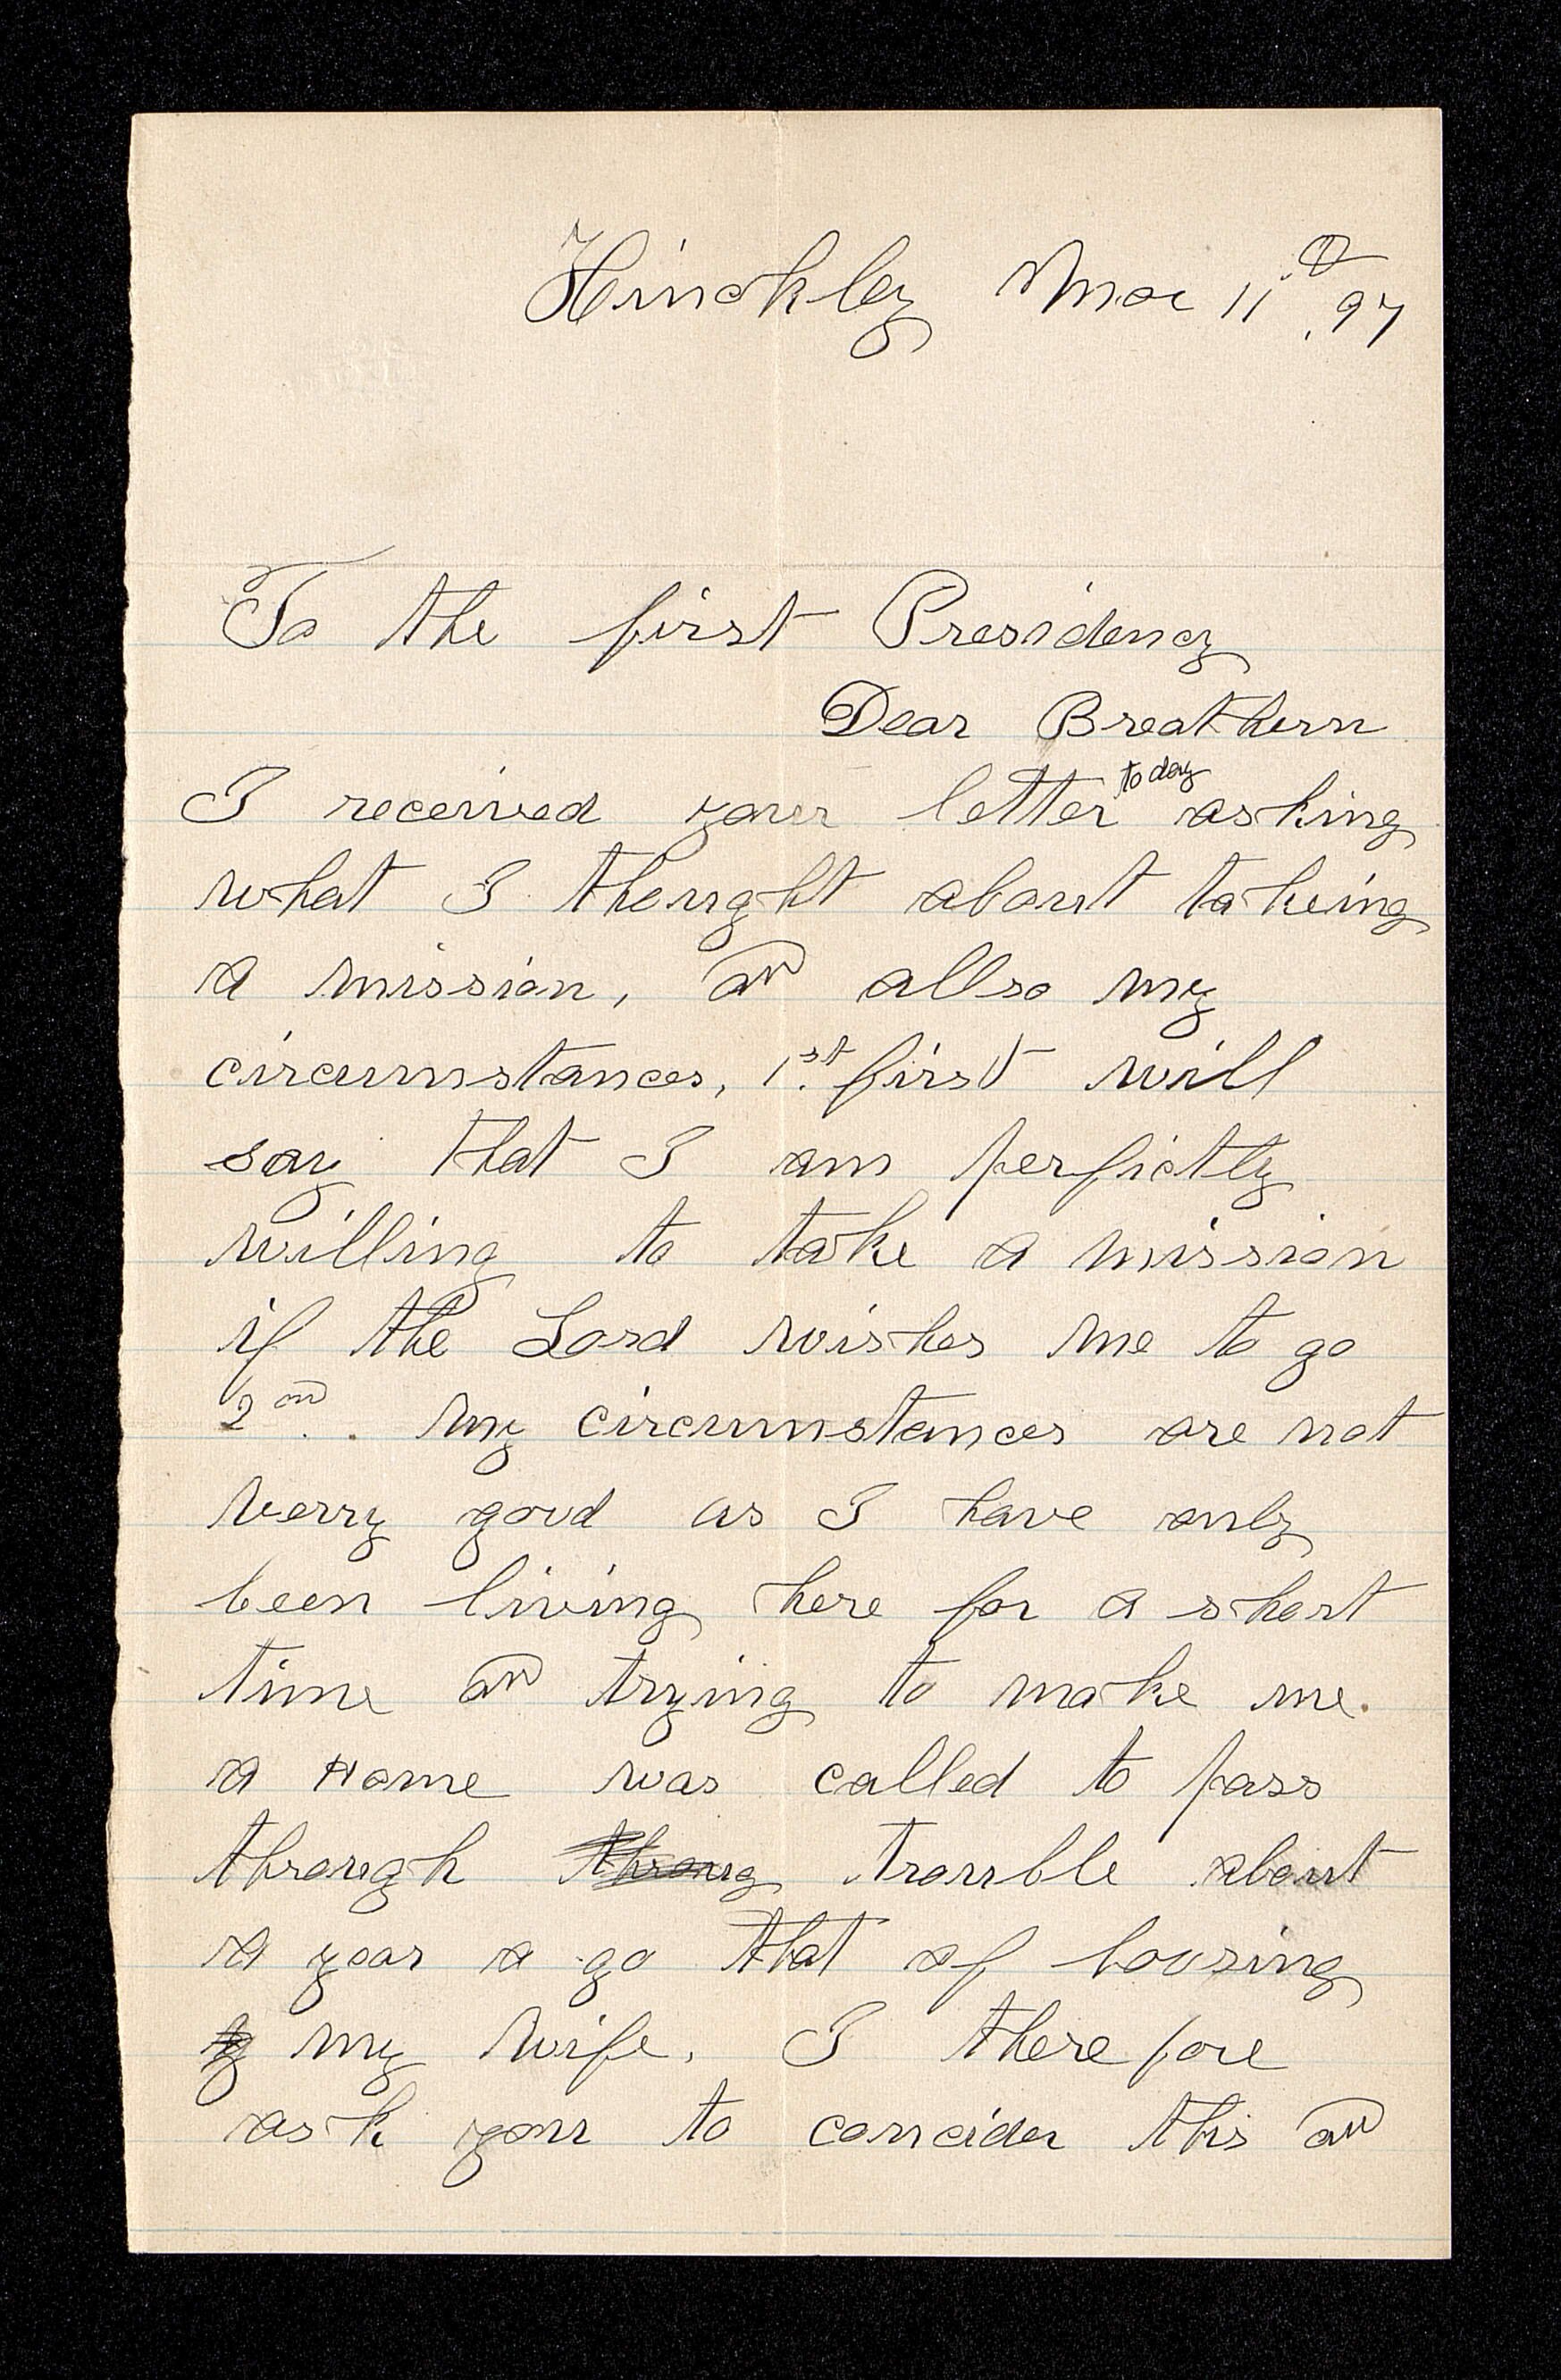 Hinckley Mar 11th, 97
To the first Presidency
Dear Breathern
I received your letter to day asking
what I thought about takeing
a mission, and allso my
circumstances, 1st. first will
say that I am perfictly
willing to take a mission
if the Lord wishes me to go
2nd.. my circumstances are not
verry good as I have only
been living here for a short
time and trying to make me.
a Home was called to pass
through throug trouble about
a year a go that of loosing
my wife. I there fore
ask you to concider this and